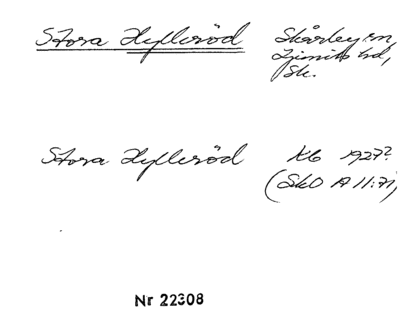 Stora Hylleröd Skårby sn,
Ljunits hd,
Sk.
Stora Hylleröd Kb 1927?
(SkO A 11:71)
Nr 22308